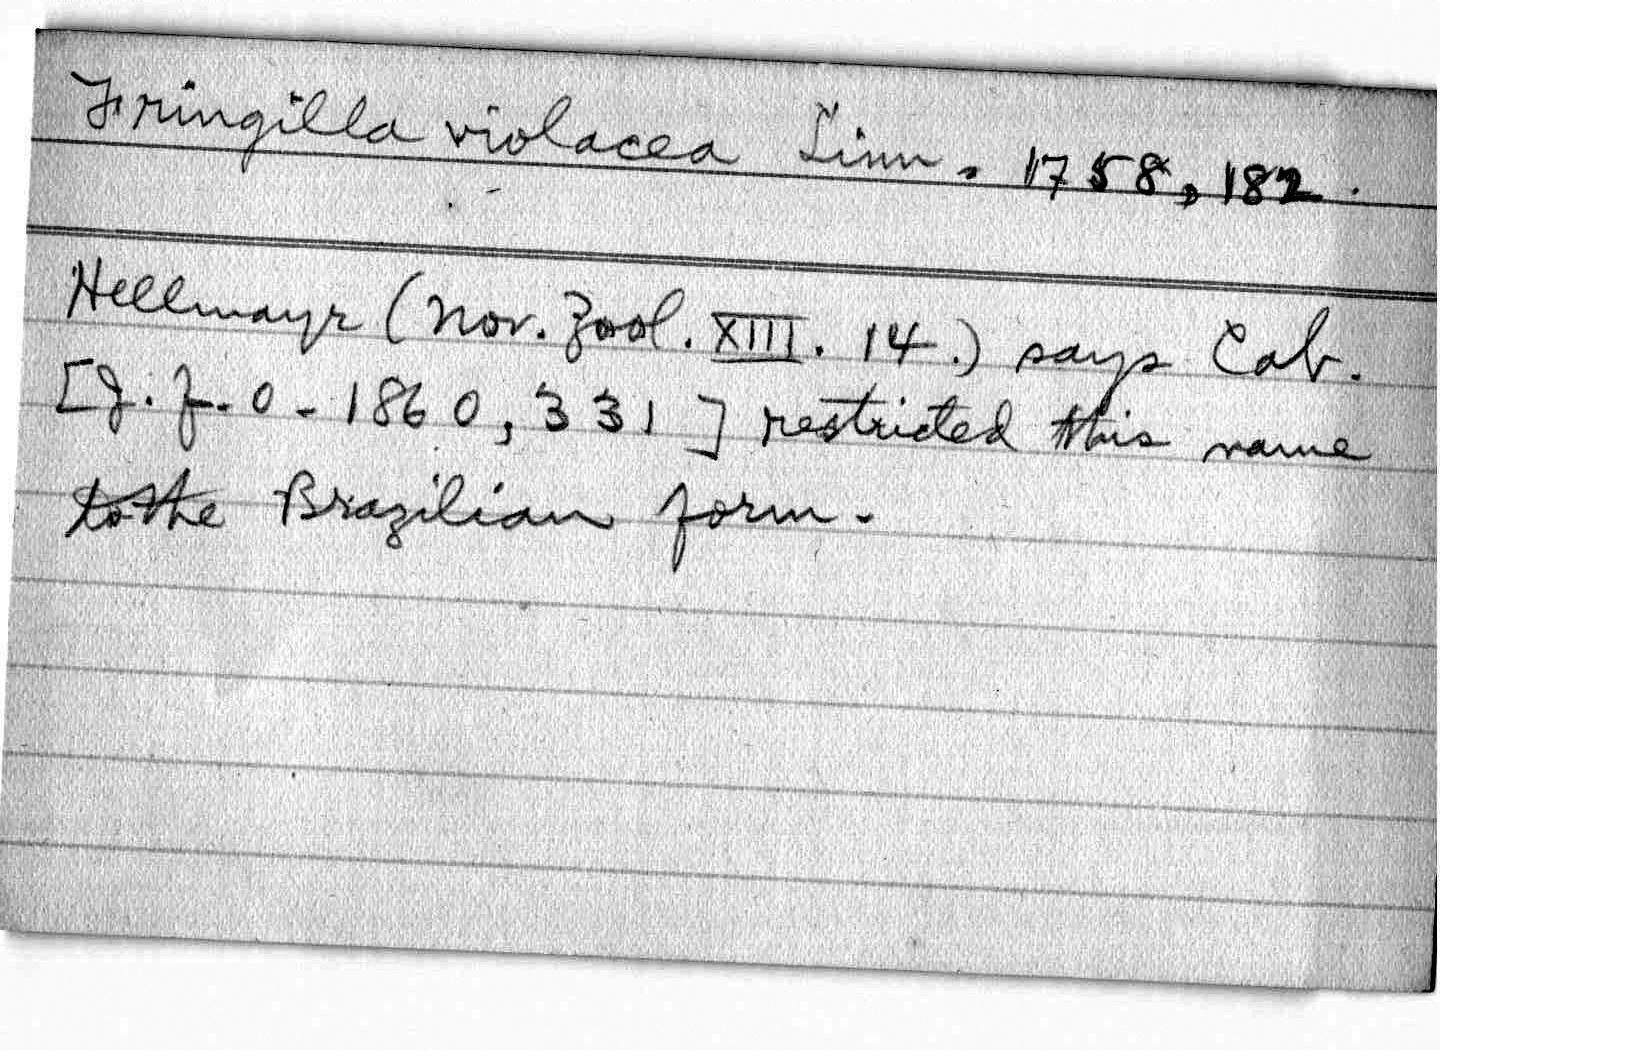 Fringilla violacea Linn. 1758, 182.
Hellmayr (Nov. Zool. XIII. 14.) says Cab.
[J. f. O - 1860, 331] restricted this name
to the Brazilian form.